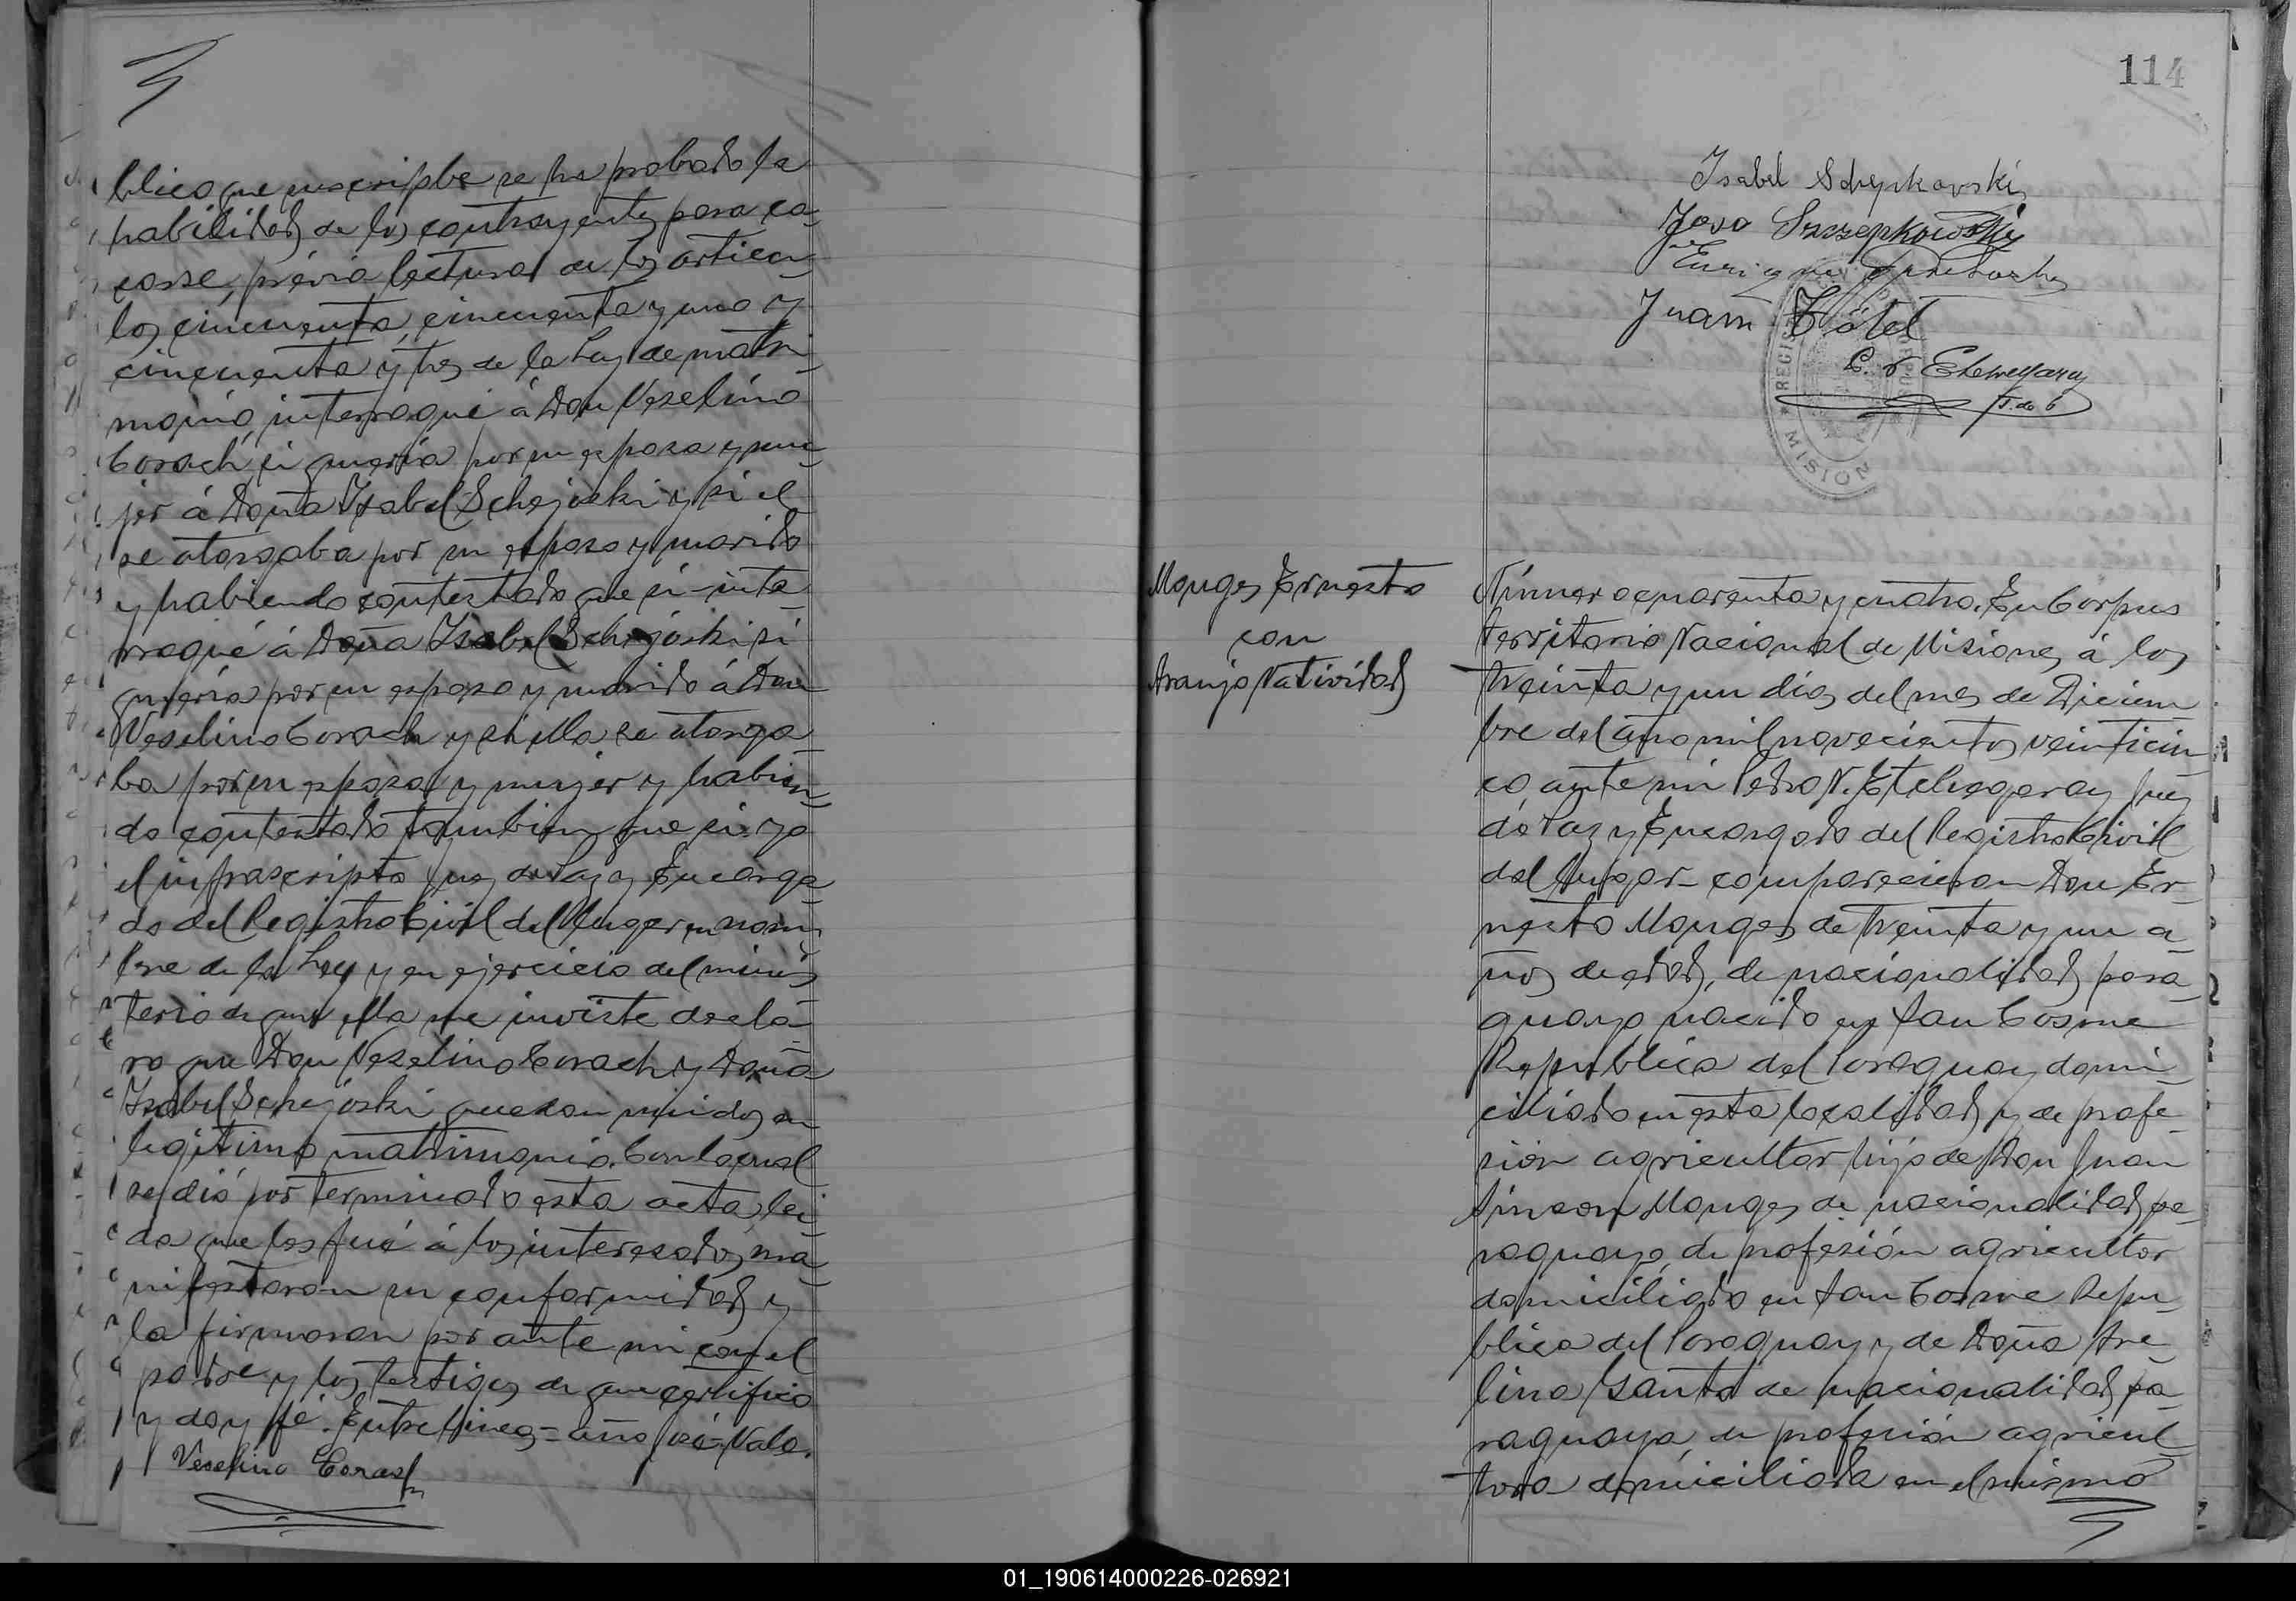 blico que suscripbe se ha probado la
habilidad de los contrayentes para ca-
sarse, prévia lectura de los artícu-
los cincuenta, cincuenta y uno y
cincuenta y tres de la Ley de matri-
monio, interrogué á Don Veselino
Corach si quería por su esposa y mu-
jer á Doña Isabel Schejoski y si el
se otorgaba por su esposo y marido
y habiendo contestado que si inte-
rrogué á Doña Isabel Schejoski si
quería por su esposo y marido á Don
Veselino Corach y si ella se otorga-
ba por su esposa y mujer y habien-
do contestado tambien que si. yo
el infrascripto Juez de Paz y Encarga-
do del Registro Civil del lugar en nom-
bre de la Ley y en ejercicio del minis-
terio de que ella me inviste decla-
ro que Don Veselino Corach y Doña
Isabel Schejóski quedan unidos en
legítimo matrimonio. Con lo cual
se dió por terminado esta acta, lei-
da que les fué á los interesados, ma-
nifestaron su conformidad y
la firmaron por ante mi con el
padre y los testigos de que certifico
y doy fé. Entre lineas = años Vale.
Veselino Corach
114
Isabel Schepkovski
Jose Szczepkowski
Enrique
Juan Hötel
P. N. Etchegaray
J. de P
REGIS
MISION
Monges Ernesto
con
Araujo Natividad
Número cuarenta y cuatro. En Corpus
Territorio Nacional de Misiones á los
treinta y un dias del mes de Diciem
bre del año mil novecientos veinticin
co, ante mi Pedro N. Etchegaray Juez
de Paz y Encargado del Registro Civil
del lugar - comparecieron Don Er-
nesto Monges de treinta y un a-
ños de edad, de nacionalidad para-
guayo nacido en San Cosme
Republica del Paraguay domi-
ciliado en esta localidad y de profe-
sion agricultor hijo de Don Juan
Simeon Monges de nacionalidad pa-
raguayo, de profesión agricultor
domiciliado en San Cosme Repu-
blica del Paraguay y de Doña Ave-
lina Zanto de nacionalidad pa-
raguaya, de profesión agricul-
tora domiciliada en el mismo
01_190614000226-026921